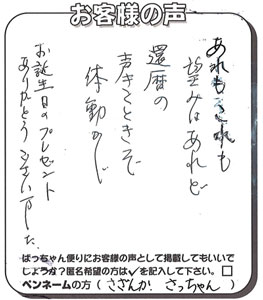 お客様の声
あれもこれも
望みはあれど
還暦の
声きくときぞ
体動かじ
お誕生日のプレゼント
ありがとうございました
ばっちゃん便りにお客様の声として掲載してもいいで
しょうか?匿名希望の方は✓を記入して下さい。□
ペンネームの方( さざんか さっちゃん )